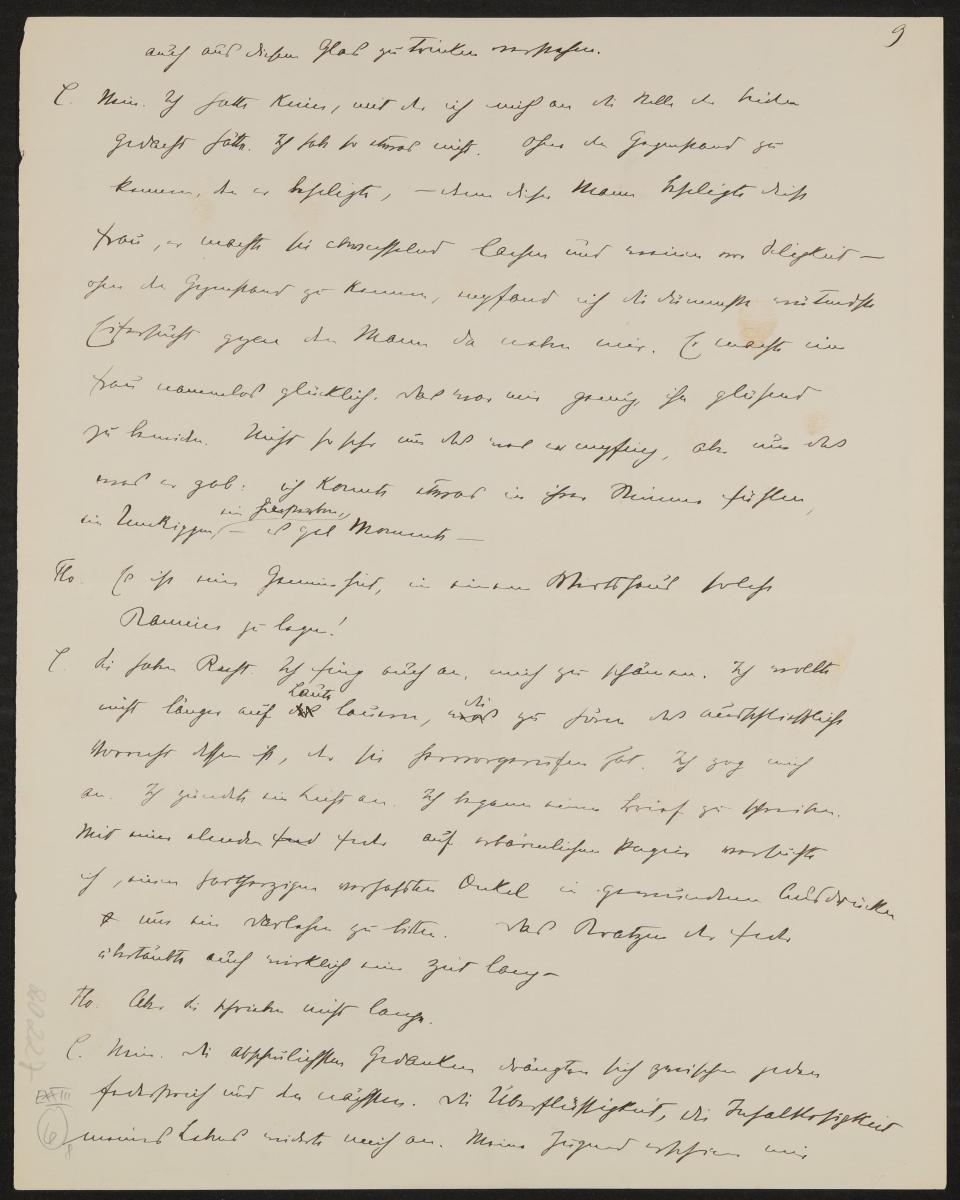 9
auch aus diesem Glas zu trinken verstehen.
C. Nein. Ich hatte Keine, mit der ich mich an die Stelle der beiden
gedacht hätte. Ich sah so etwas nicht. Ohne den Gegenstand zu
kennen, den er beseligte, – denn dieser Mann beseligte diese
Frau, er machte sie abwechselnd lachen und weinen vor Seligkeit –
ohne den Gegenstand zu kennen, empfand ich die dümmste wütendste
Eifersucht gegen den Mann da neben mir. Er machte eine
Frau namenlos glücklich. Das war mir genug, ihn glühend
zu beneiden. Nicht so sehr um das was er empfing, aber um das
was er gab: ich konnte etwas in ihren Stimmen fühlen,
ein Umkippen, ein – es gab Momente –
Flo. Es ist eine Gemeinheit, in einem Wirtshaus solche
Ranieies zu legen!
C. Sie haben Recht. Ich fing auch an, mich zu schämen. Ich wollte
nicht länger auf Laute lauern, die zu hören das ausschliessliche
Vorrecht dessen ist, der sie hervorgerufen hat. Ich zog mich
an. Ich zündete ein Licht an. Ich begann einen Brief zu schreiben.
Mit einer elenden Feder auf erbärmlichem Papier versuchte
ich, einen hartherzigen verhassten Onkel in gewundenen Ausdrücken
um ein Darlehen zu bitten. Das Kratzen der Feder
übertäubte auch wirklich eine Zeit lang –
Flo. Aber Sie schrieben nicht lange.
C. Nein. Die abscheulichsten Gedanken drängten sich zwischen jeden
Federstrich und den nächsten. Die Überflüssigkeit, die Inhaltlosigkeit
meines Lebens widerte mich an. Meine Jugend erschien mir
EXIII
6